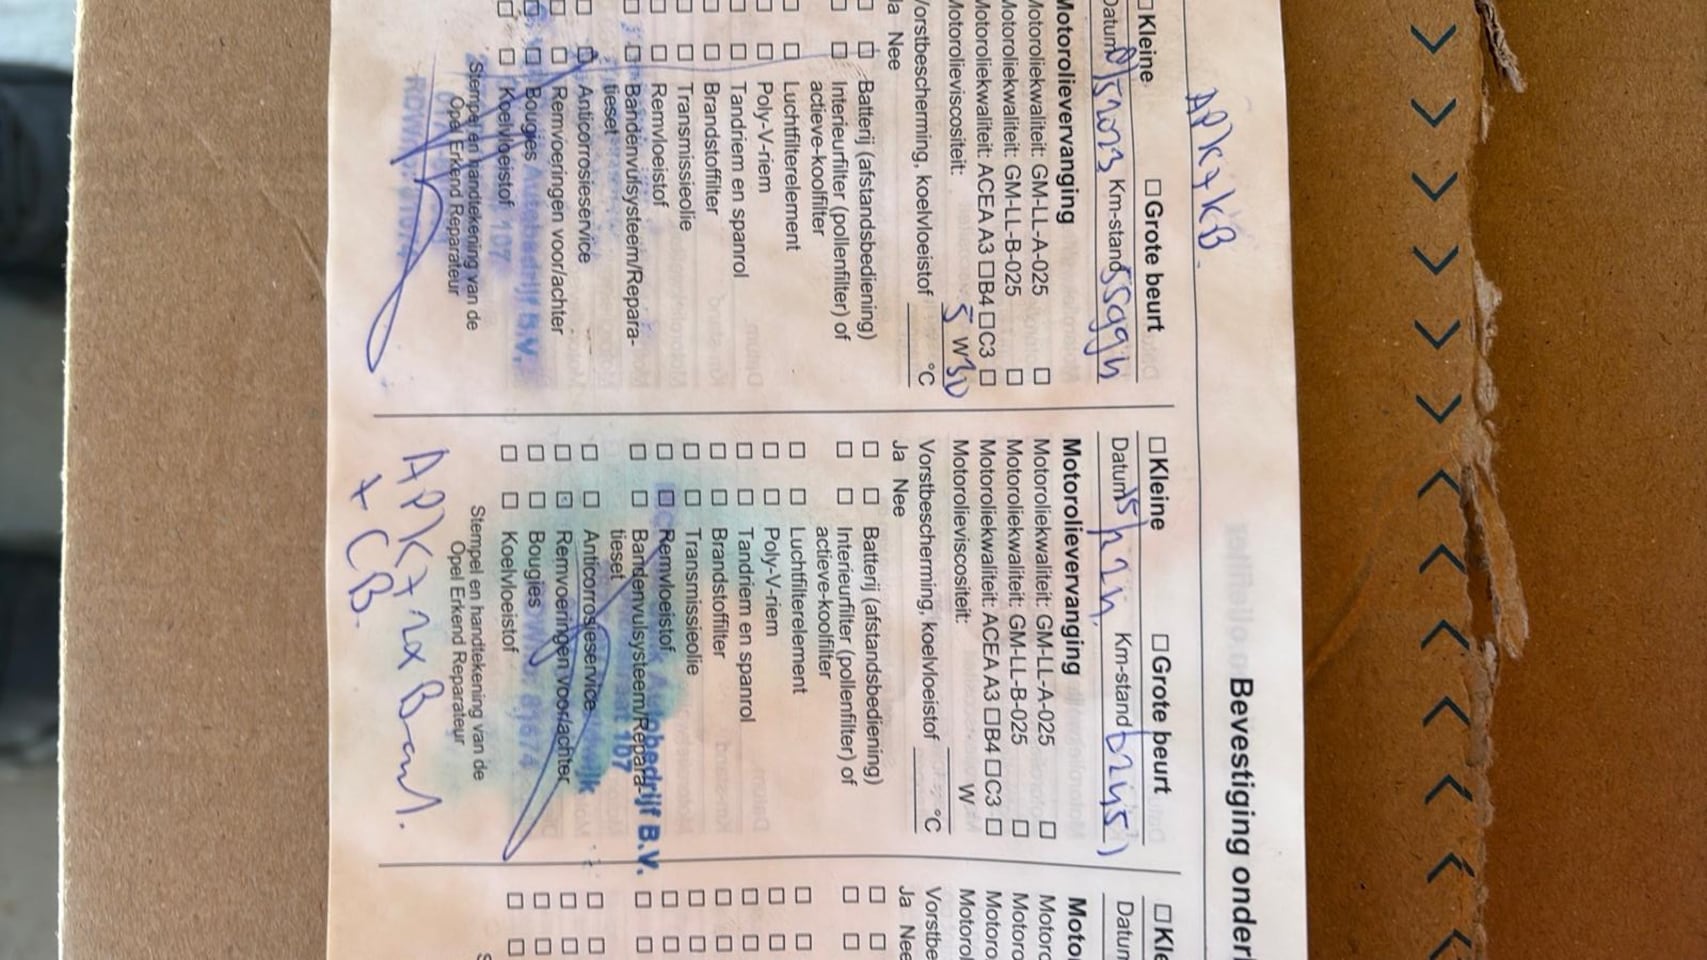 Bevestiging onderh
APK + KB.
□Kleine □Grote beurt
Datum Km-stand 55994
Motorolievervanging
Motoroliekwaliteit: GM-LL-A-025 □
Motoroliekwaliteit: GM-LL-B-025 □
Motoroliekwaliteit: ACEA A3 □B4 □C3 □
Motorolieviscositeit: 5 W30
Vorstbescherming, koelvloeistof °C
Ja Nee
□ □ Batterij (afstandsbediening)
□ □ Interieurfilter (pollenfilter) of
actieve-koolfilter
□ □ Luchtfilterelement
□ □ Poly-V-riem
□ □ Tandriem en spanrol
□ □ Brandstoffilter
□ □ Transmissieolie
□ □ Remvloeistof
□ □ Bandenvulsysteem/Repara-
tieset
□ □ Anticorrosieservice
□ □ Remvoeringen voor/achter
□ □ Bougies
□ □ Koelvloeistof
Stempel en handtekening van de
Opel Erkend Reparateur
bedrijf B.V.
107
□Kleine □Grote beurt
Datum Km-stand 62451
Motorolievervanging
Motoroliekwaliteit: GM-LL-A-025 □
Motoroliekwaliteit: GM-LL-B-025 □
Motoroliekwaliteit: ACEA A3 □B4 □C3 □
Motorolieviscositeit: W
Vorstbescherming, koelvloeistof °C
Ja Nee
□ □ Batterij (afstandsbediening)
□ □ Interieurfilter (pollenfilter) of
actieve-koolfilter
□ □ Luchtfilterelement
□ □ Poly-V-riem
□ □ Tandriem en spanrol
□ □ Brandstoffilter
□ □ Transmissieolie
□ □ Remvloeistof
□ □ Bandenvulsysteem/Repara-
tieset
□ □ Anticorrosieservice
□ □ Remvoeringen voor/achter
□ □ Bougies
□ □ Koelvloeistof
Stempel en handtekening van de
Opel Erkend Reparateur
bedrijf B.V.
107
APK + 2x Band.
+ CB.
□Kle
Datum
Moto
Motoro
Motoro
Motoro
Motorol
Vorstbe
Ja Nee